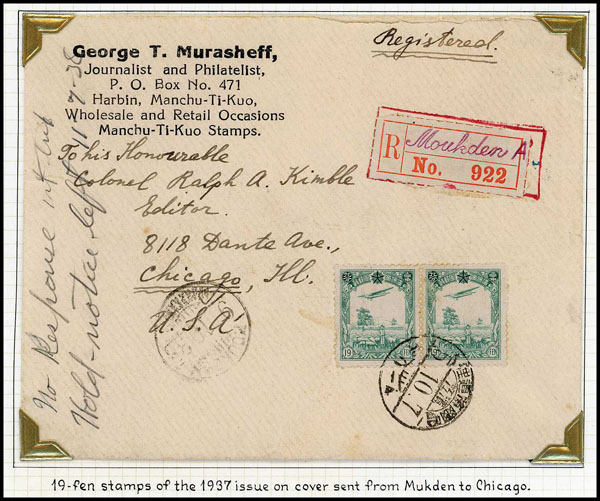 George T. Murasheff,
Journalist and Philatelist,
P. O. Box No. 471
Harbin, Manchu-Ti-Kuo,
Wholesale and Retail Occasions
Manchu-Ti-Kuo Stamps.
Registered.
R Moukden A
No. 922
To his Honourable
Colonel Ralph A. Kimble
Editor.
8118 Dante Ave.,
Chicago, Ill.
U.S.A
No Response
Hold-notice left
19
19
10.7
19-fen stamps of the 1937 issue on cover sent from Mukden to Chicago.